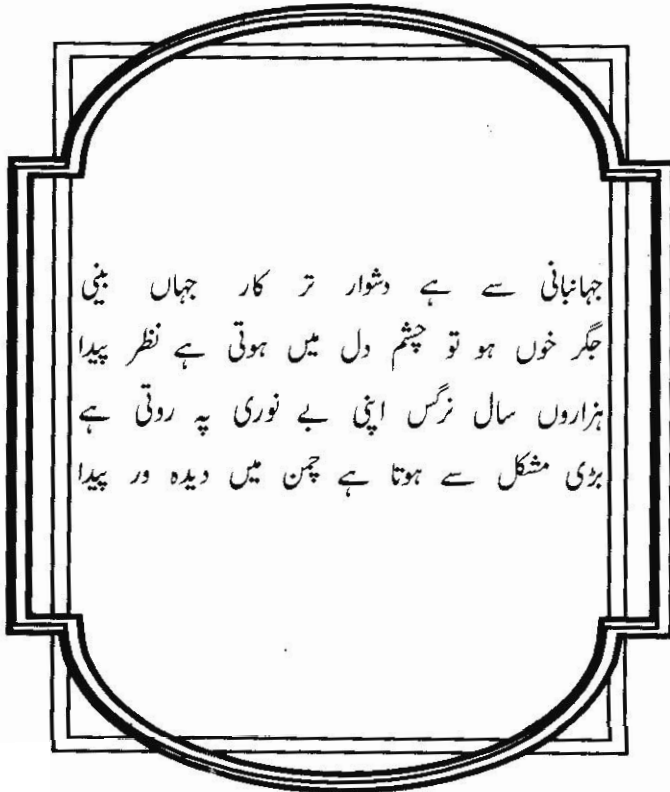 جہانبانی سے ہے دشوار تر کار جہاں بینی
جگر خوں ہو تو چشم دل میں ہوتی ہے نظر پیدا
ہزاروں سال نرگس اپنی بے نوری پہ روتی ہے
بڑی مشکل سے ہوتا ہے چمن میں دیدہ ور پیدا